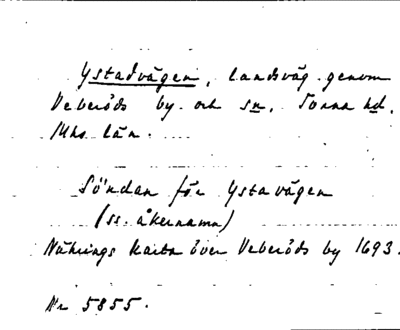 Ystadvägen, landsväg genom
Veberöds by och sn, Torna hd,
Mhs län.
Söndan för Ystavägen
(ss. åkernamn)
Nährings karta över Veberöds by 1693.
Nr 5855.